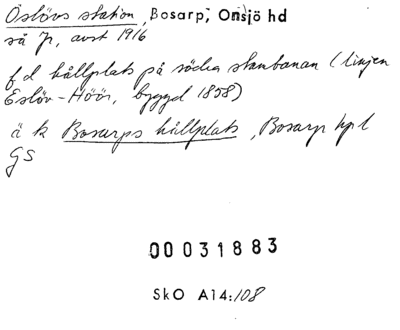 Öslövs station, Bosarp, Onsjö hd
så Jr, avst 1916
f d hållplats på södra stambanan (linjen
Eslöv-Höör, byggd 1858)
ä k Bosarps hållplats, Bosarp hpl
GS
00031883
SkO A14:108